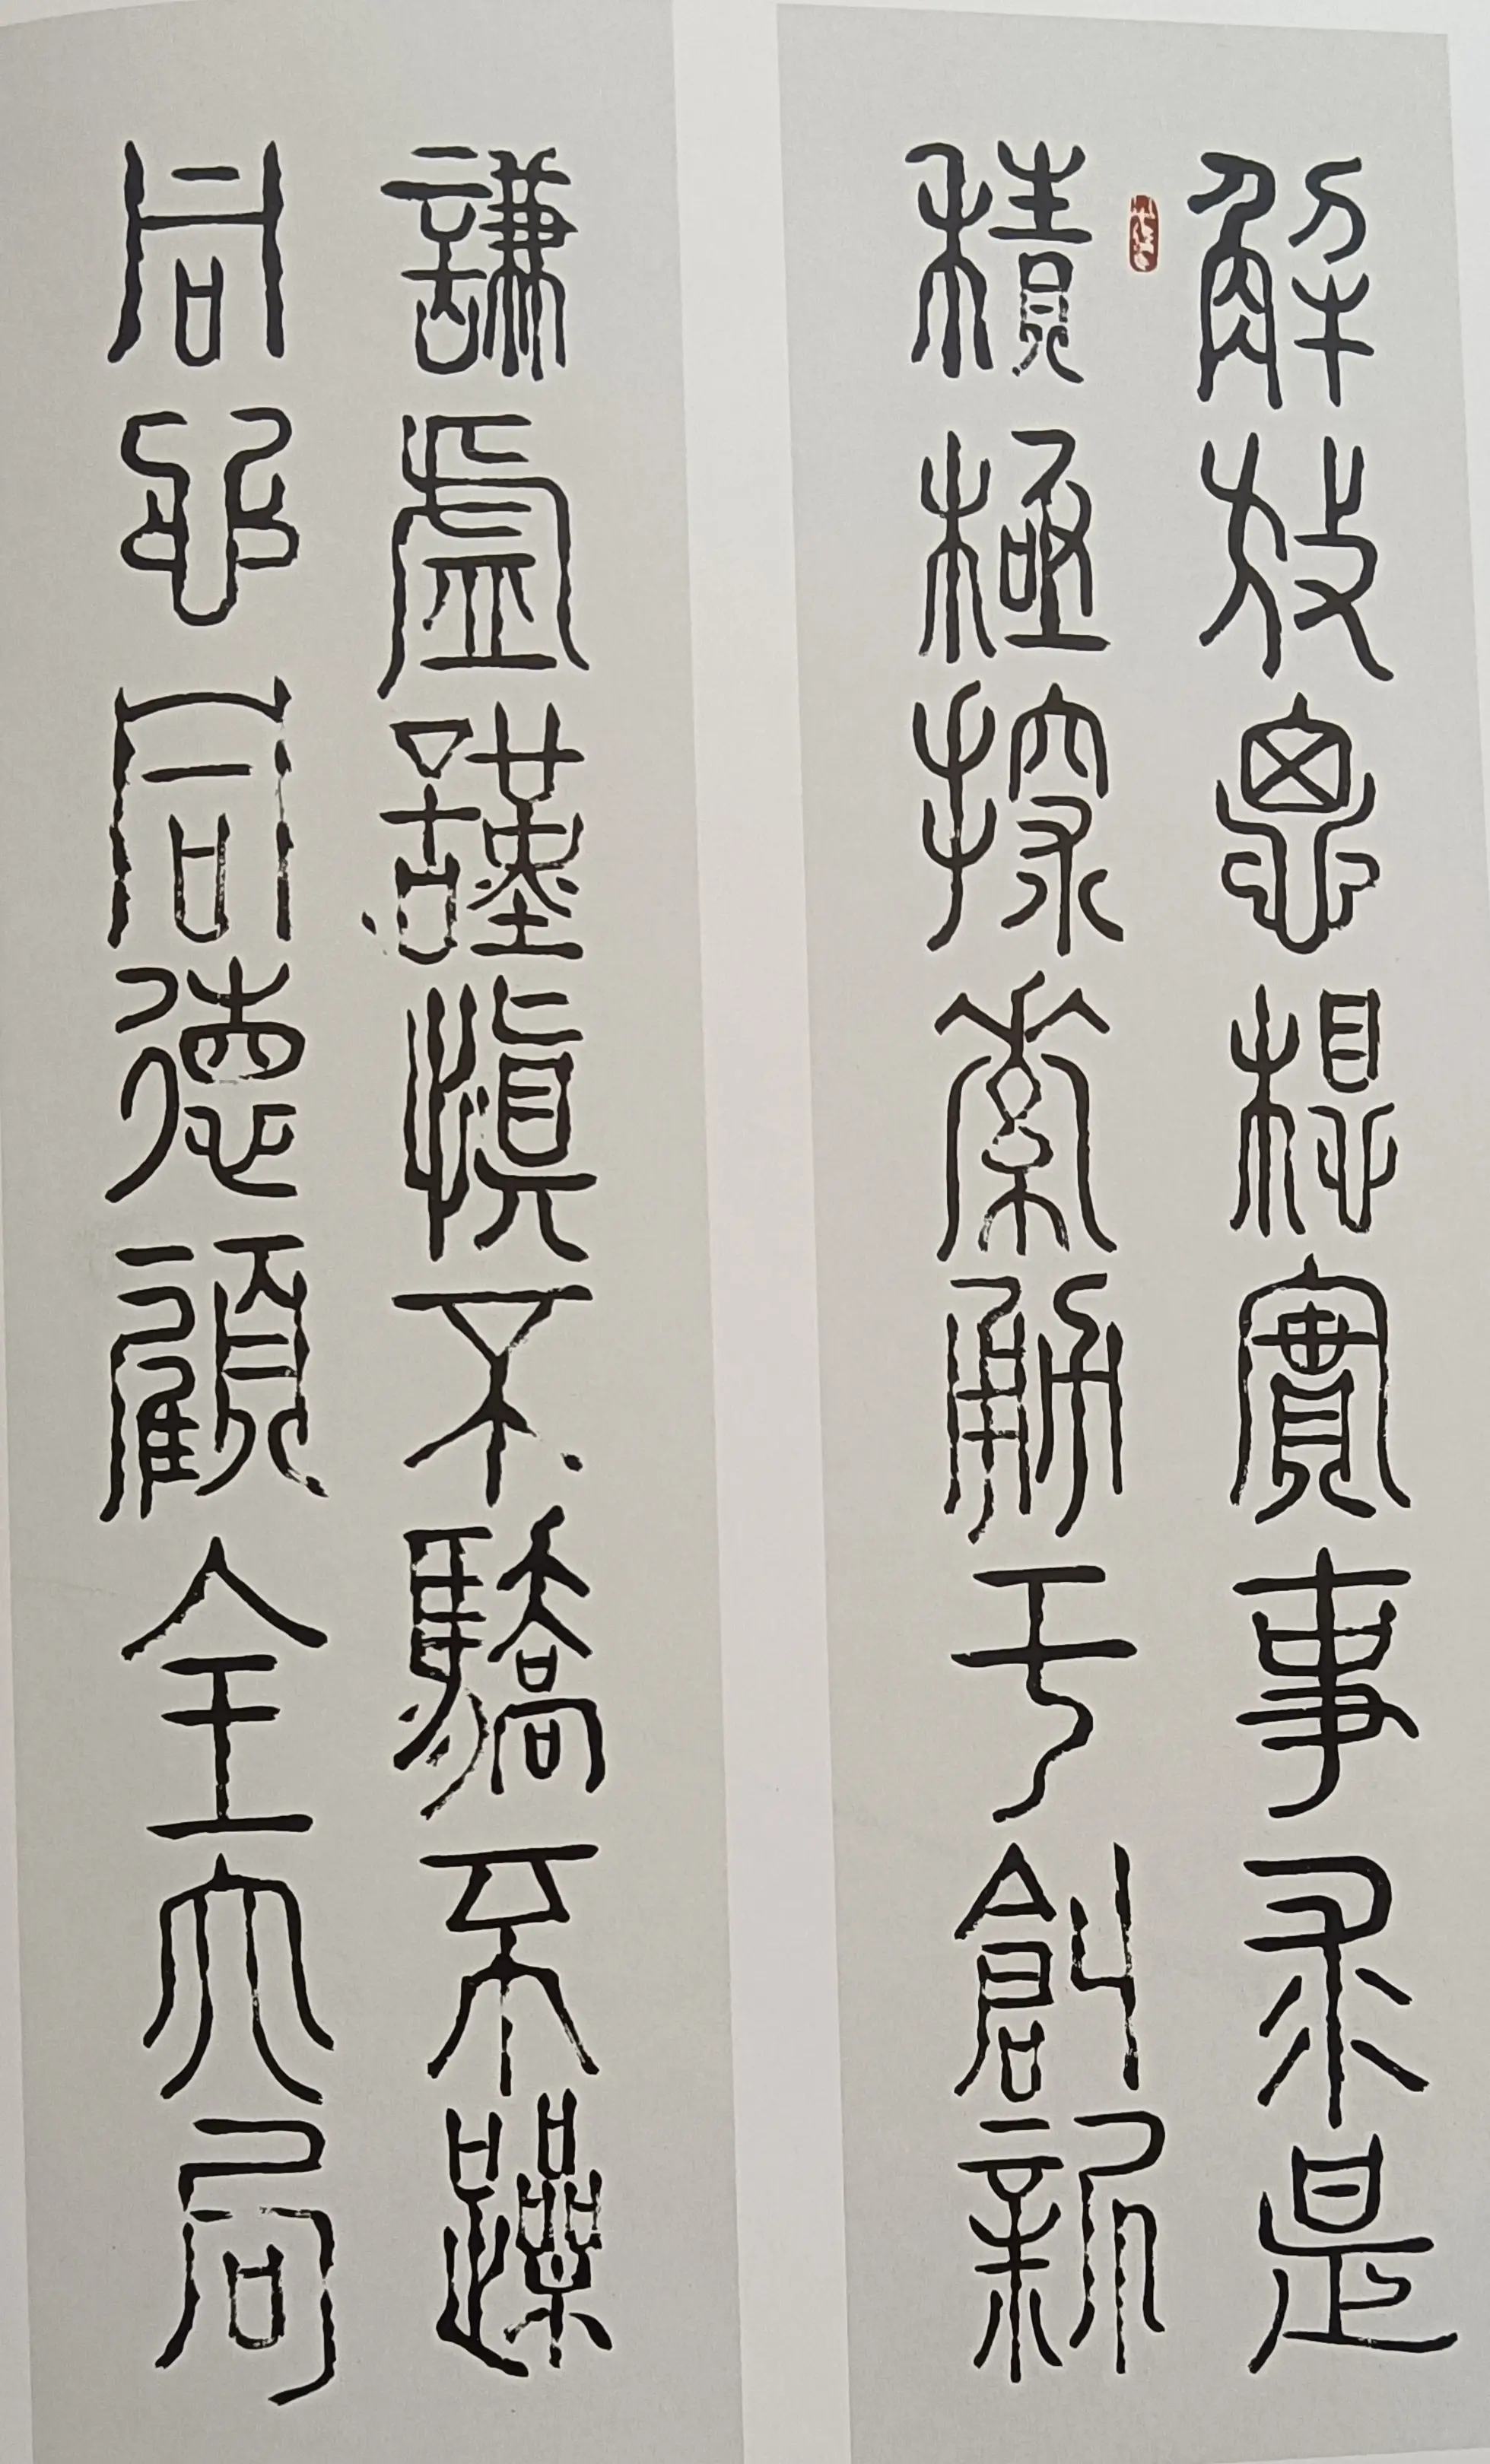 解放思想實事求是
積極探索勇于創新
謙虛謹慎不驕不躁
同心同德顧全大局